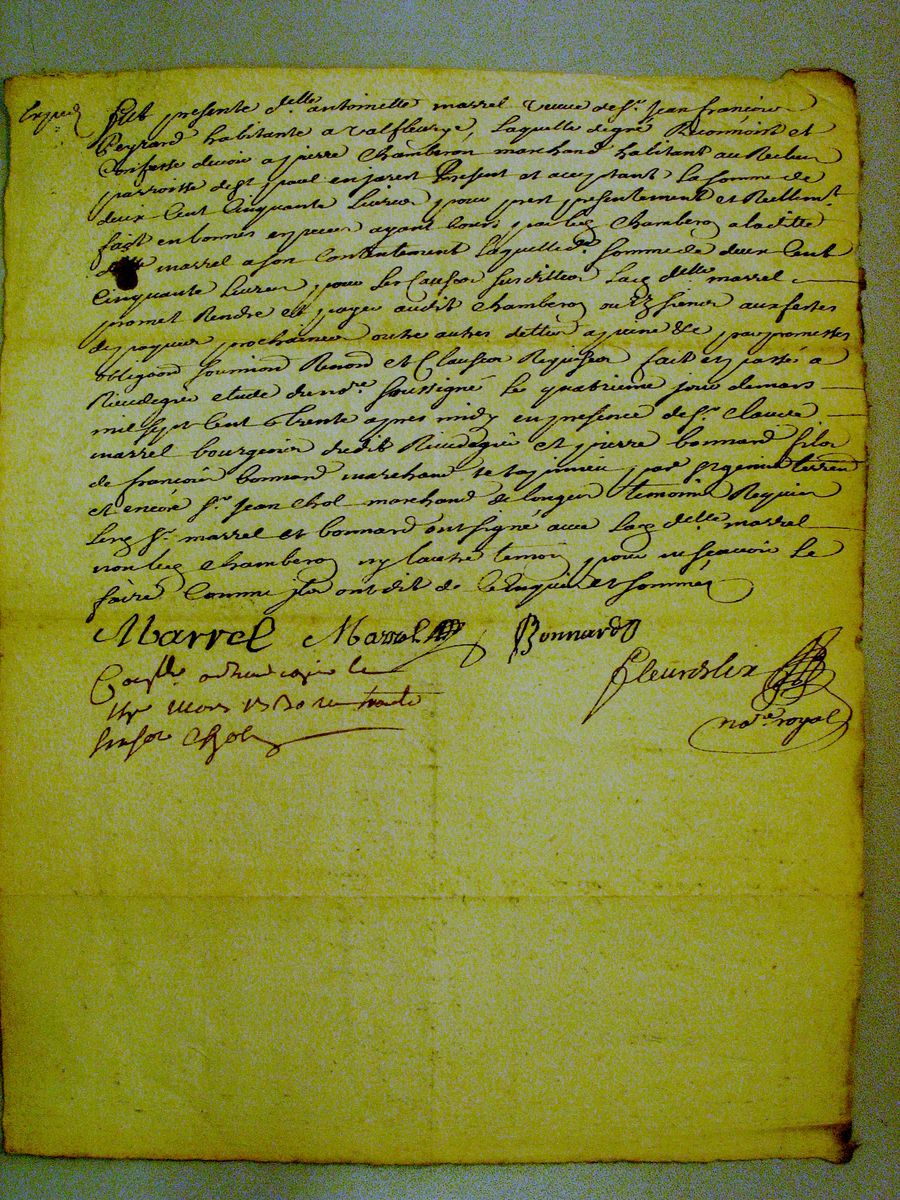 Expedi
Fut presente d.elle antoinette marrel veuve de s.r Jean françois
Peyrard habitante a valfleurye, Laquelle degré Reconnoist et
Confesse devoir a pierre Chamberon marchand habitant au Reclus
parroisse de st paul en jarest present et acceptant La somme de
deux Cent Cinquante Livres pour prest presentement et Reellem.t
fait en bonnes especes ayant Cours par led. Chamberon a laditte
d.elle marrel a son Contentement Laquelle d. somme de deux Cent
Cinquante Livres pour les Causes susdittes Lad. d.elle marrel
promet Rendre et payer audit Chamberon ou es siens aux festes
de paques prochaines outre autres dettes a peine &c par promesses
obliga.on soumi.on Renon.on et Clauses Requises fait et passé a
Rivedegier etude du no.re soussigné Le quatrieme jour de mars
mil sept Cent trente apres midy en presence de s.r Claude
marrel bourgeois dudit Rivedegier et pierre bonnard fils
de françois bonnard marchand de st genis terren
et encore s.r Jean Chol marchand de longes temoins Requis
Lesd. s.r marrel et bonnard ont signé avec Lad. d.elle marrel
non led. Chamberon ny l'autre temoin pour ne sçavoir Le
faire Comme ils ont dit de Ce Enquis et sommés
Marrel Marrel Bonnard
Fleurdelix
no.re royal
Con.lle a Rivedegier le
mars 1730 reçu trente
six sols Chol